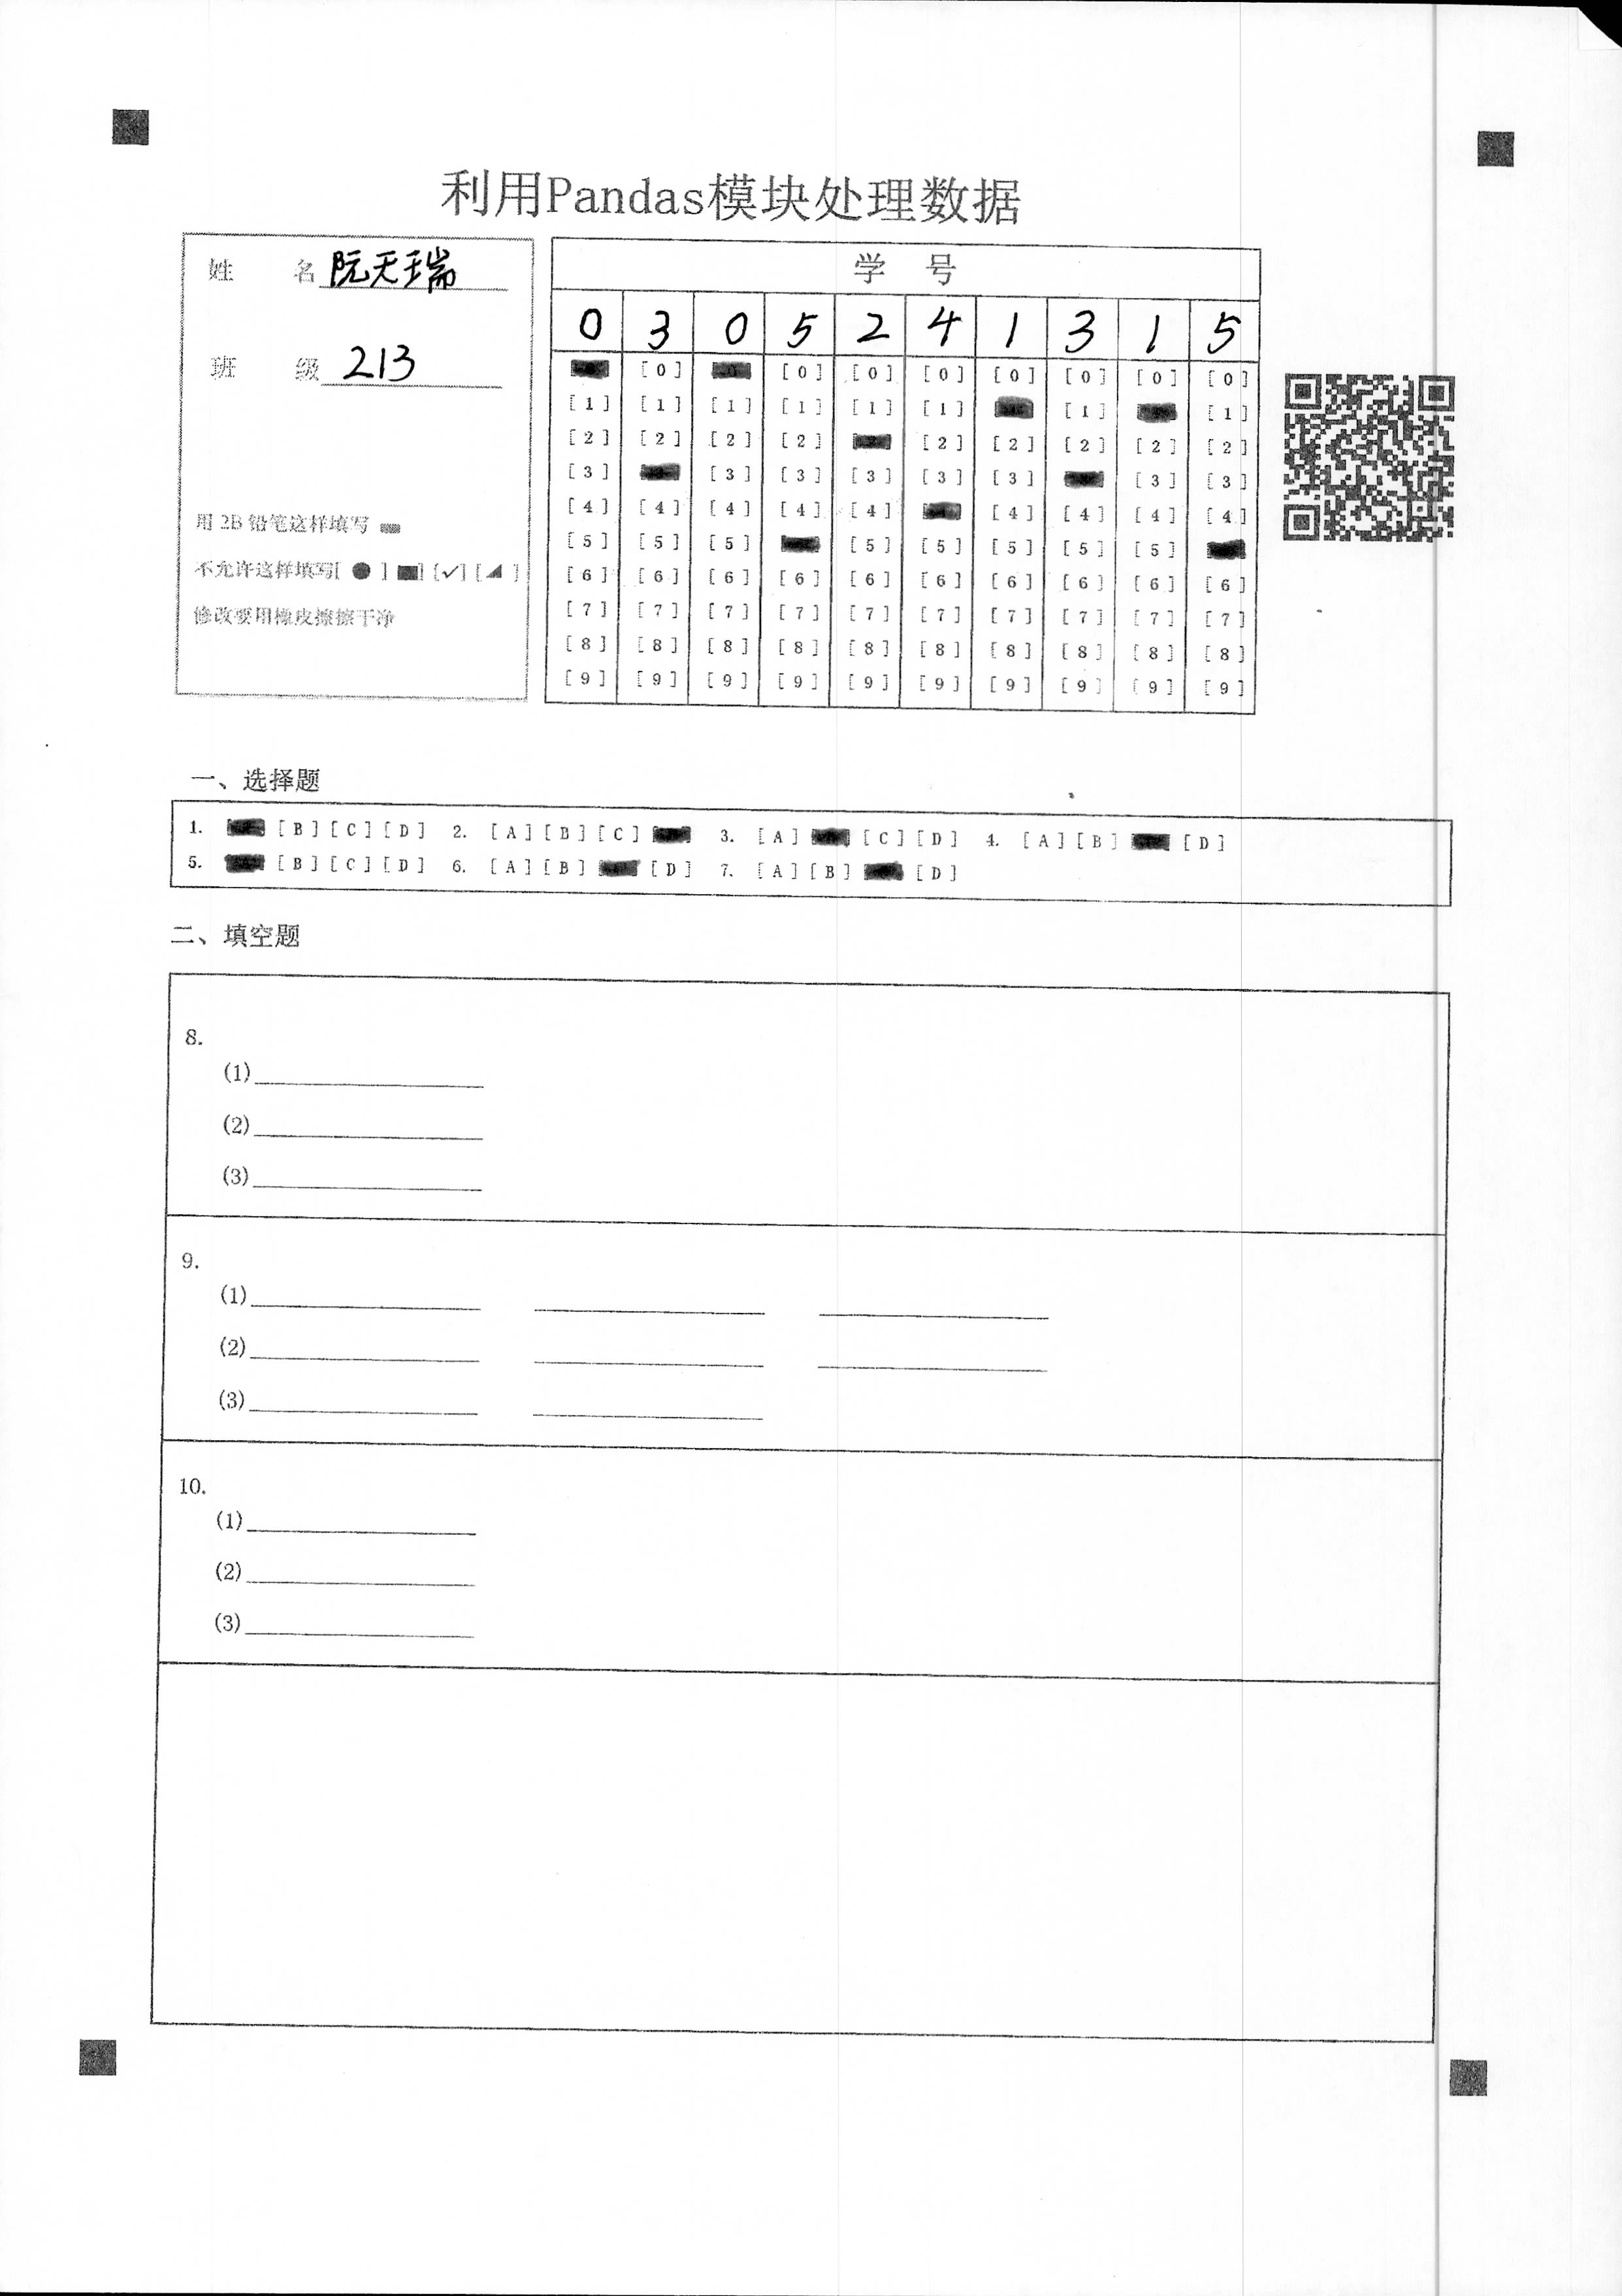 利用Pandas模块处理数据
姓 名 阮天瑞
班 级 213
用 2B 铅笔这样填写
不允许这样填写[ ● ] [■] [✓] [◢ ]
修改要用橡皮擦擦干净
学 号
0 3 0 5 2 4 1 3 1 5
[0] [0] [0] [0] [0] [0] [0] [0]
[1] [1] [1] [1] [1] [1] [1] [1]
[2] [2] [2] [2] [2] [2] [2] [2] [2]
[3] [3] [3] [3] [3] [3] [3] [3]
[4] [4] [4] [4] [4] [4] [4] [4] [4]
[5] [5] [5] [5] [5] [5] [5] [5]
[6] [6] [6] [6] [6] [6] [6] [6] [6] [6]
[7] [7] [7] [7] [7] [7] [7] [7] [7] [7]
[8] [8] [8] [8] [8] [8] [8] [8] [8] [8]
[9] [9] [9] [9] [9] [9] [9] [9] [9] [9]
一、选择题
1. [B] [C] [D] 2. [A] [B] [C] 3. [A] [C] [D] 4. [A] [B] [D]
5. [B] [C] [D] 6. [A] [B] [D] 7. [A] [B] [D]
二、填空题
8.
(1)
(2)
(3)
9.
(1)
(2)
(3)
10.
(1)
(2)
(3)